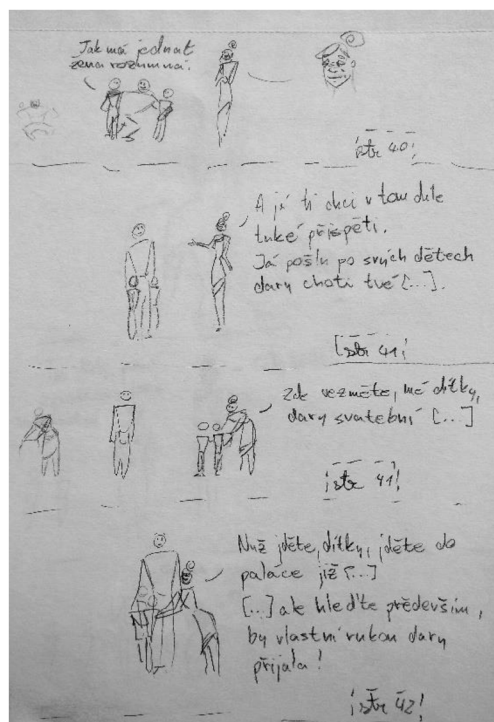 Jak má jednat
žena rozumná.
str 40
A já ti chci v tom díle
také přispěti.
Já pošlu po svých dětech
dary choti tvé [...].
str 41
Zde vezměte, mé dítky,
dary svatební [...]
str 41
Nuž jděte, dítky, jděte do
paláce již [...]
[...] ale hleďte především,
by vlastní rukou dary
přijala!
str 42